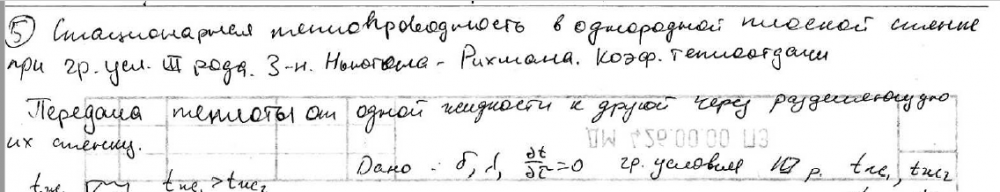 5 Стационарная теплопроводность в однородной плоской стенке
при гр. усл. III рода. З-н. Ньютона - Рихмана. Коэф. теплоотдачи
Передача теплоты от одной жидкости к другой через разделяющую
их стенку.
ДМ 426.00.00 ПЗ
Дано: δ, λ, ∂t/∂τ=0 гр. условия III р. tж₁, tж₂
tж₁ tж₁ > tж₂